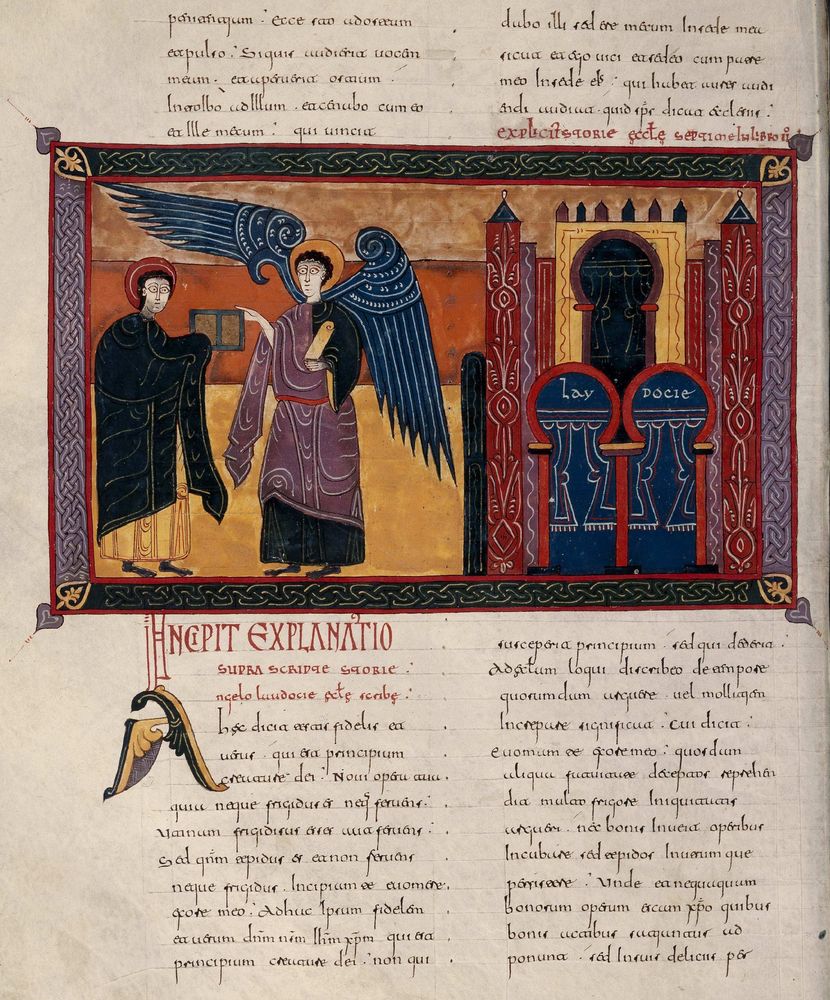 penitentiam : Ecce sto ad ostium
et pulso : Siquis audierit vocem
meam . et aperuerit ostium .
Introibo ad Illum . et cenabo cum eo
et Ille mecum : qui vincit
dabo illi sedere mecum In sede mea
sicut et ego vici et sedeo cum patre
meo In sede eius : qui habet aures audi
endi audiat . quid sps dicat eclesiis :
explicit storie eccle septime In libro II
LAV DOCIE
INCIPIT EXPLANATIO
SUPRA SCRIPTE STORIE :
Angelo laudocie ecle scribe :
Hec dicit testis fidelis et
verus . qui est principium
creature dei : Novi opera tua .
quia neque frigidus es neq fervens :
Utinam frigidus esses aut fervens :
Sed qnm tepidus es et non fervens
neque frigidus . Incipiam te evomere .
ex ore meo : Adhuc Ipsum fidelem
et verum dnm nsm Ihm xpm qui est
principium creature dei : non qui
susceperit principium . sed qui dederit :
loqui de tempore
quorumdam vel mollitiem
Increpare significat : Cui dicit :
evomam te ex ore meo : quosdam
aliqua suavitate deceptos reprehen
dit frigore Iniquitatis
nec bonis Inventa operibus
sed tepidos Inverum que
: Unde et nequaquam
bonorum operum cum xpo quibus
bonis actibus ad
. sed In suis deliciis per